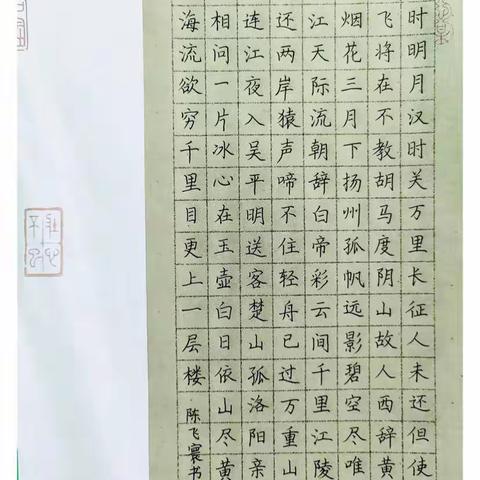 时明月汉时关万里长征人未还但使
飞将在不教胡马度阴山故人西辞黄
烟花三月下扬州孤帆远影碧空尽唯
江天际流朝辞白帝彩云间千里江陵
还两岸猿声啼不住轻舟已过万重山
连江夜入吴平明送客楚山孤洛阳亲
相问一片冰心在玉壶白日依山尽黄
海流欲穷千里目更上一层楼
陈飞寰书